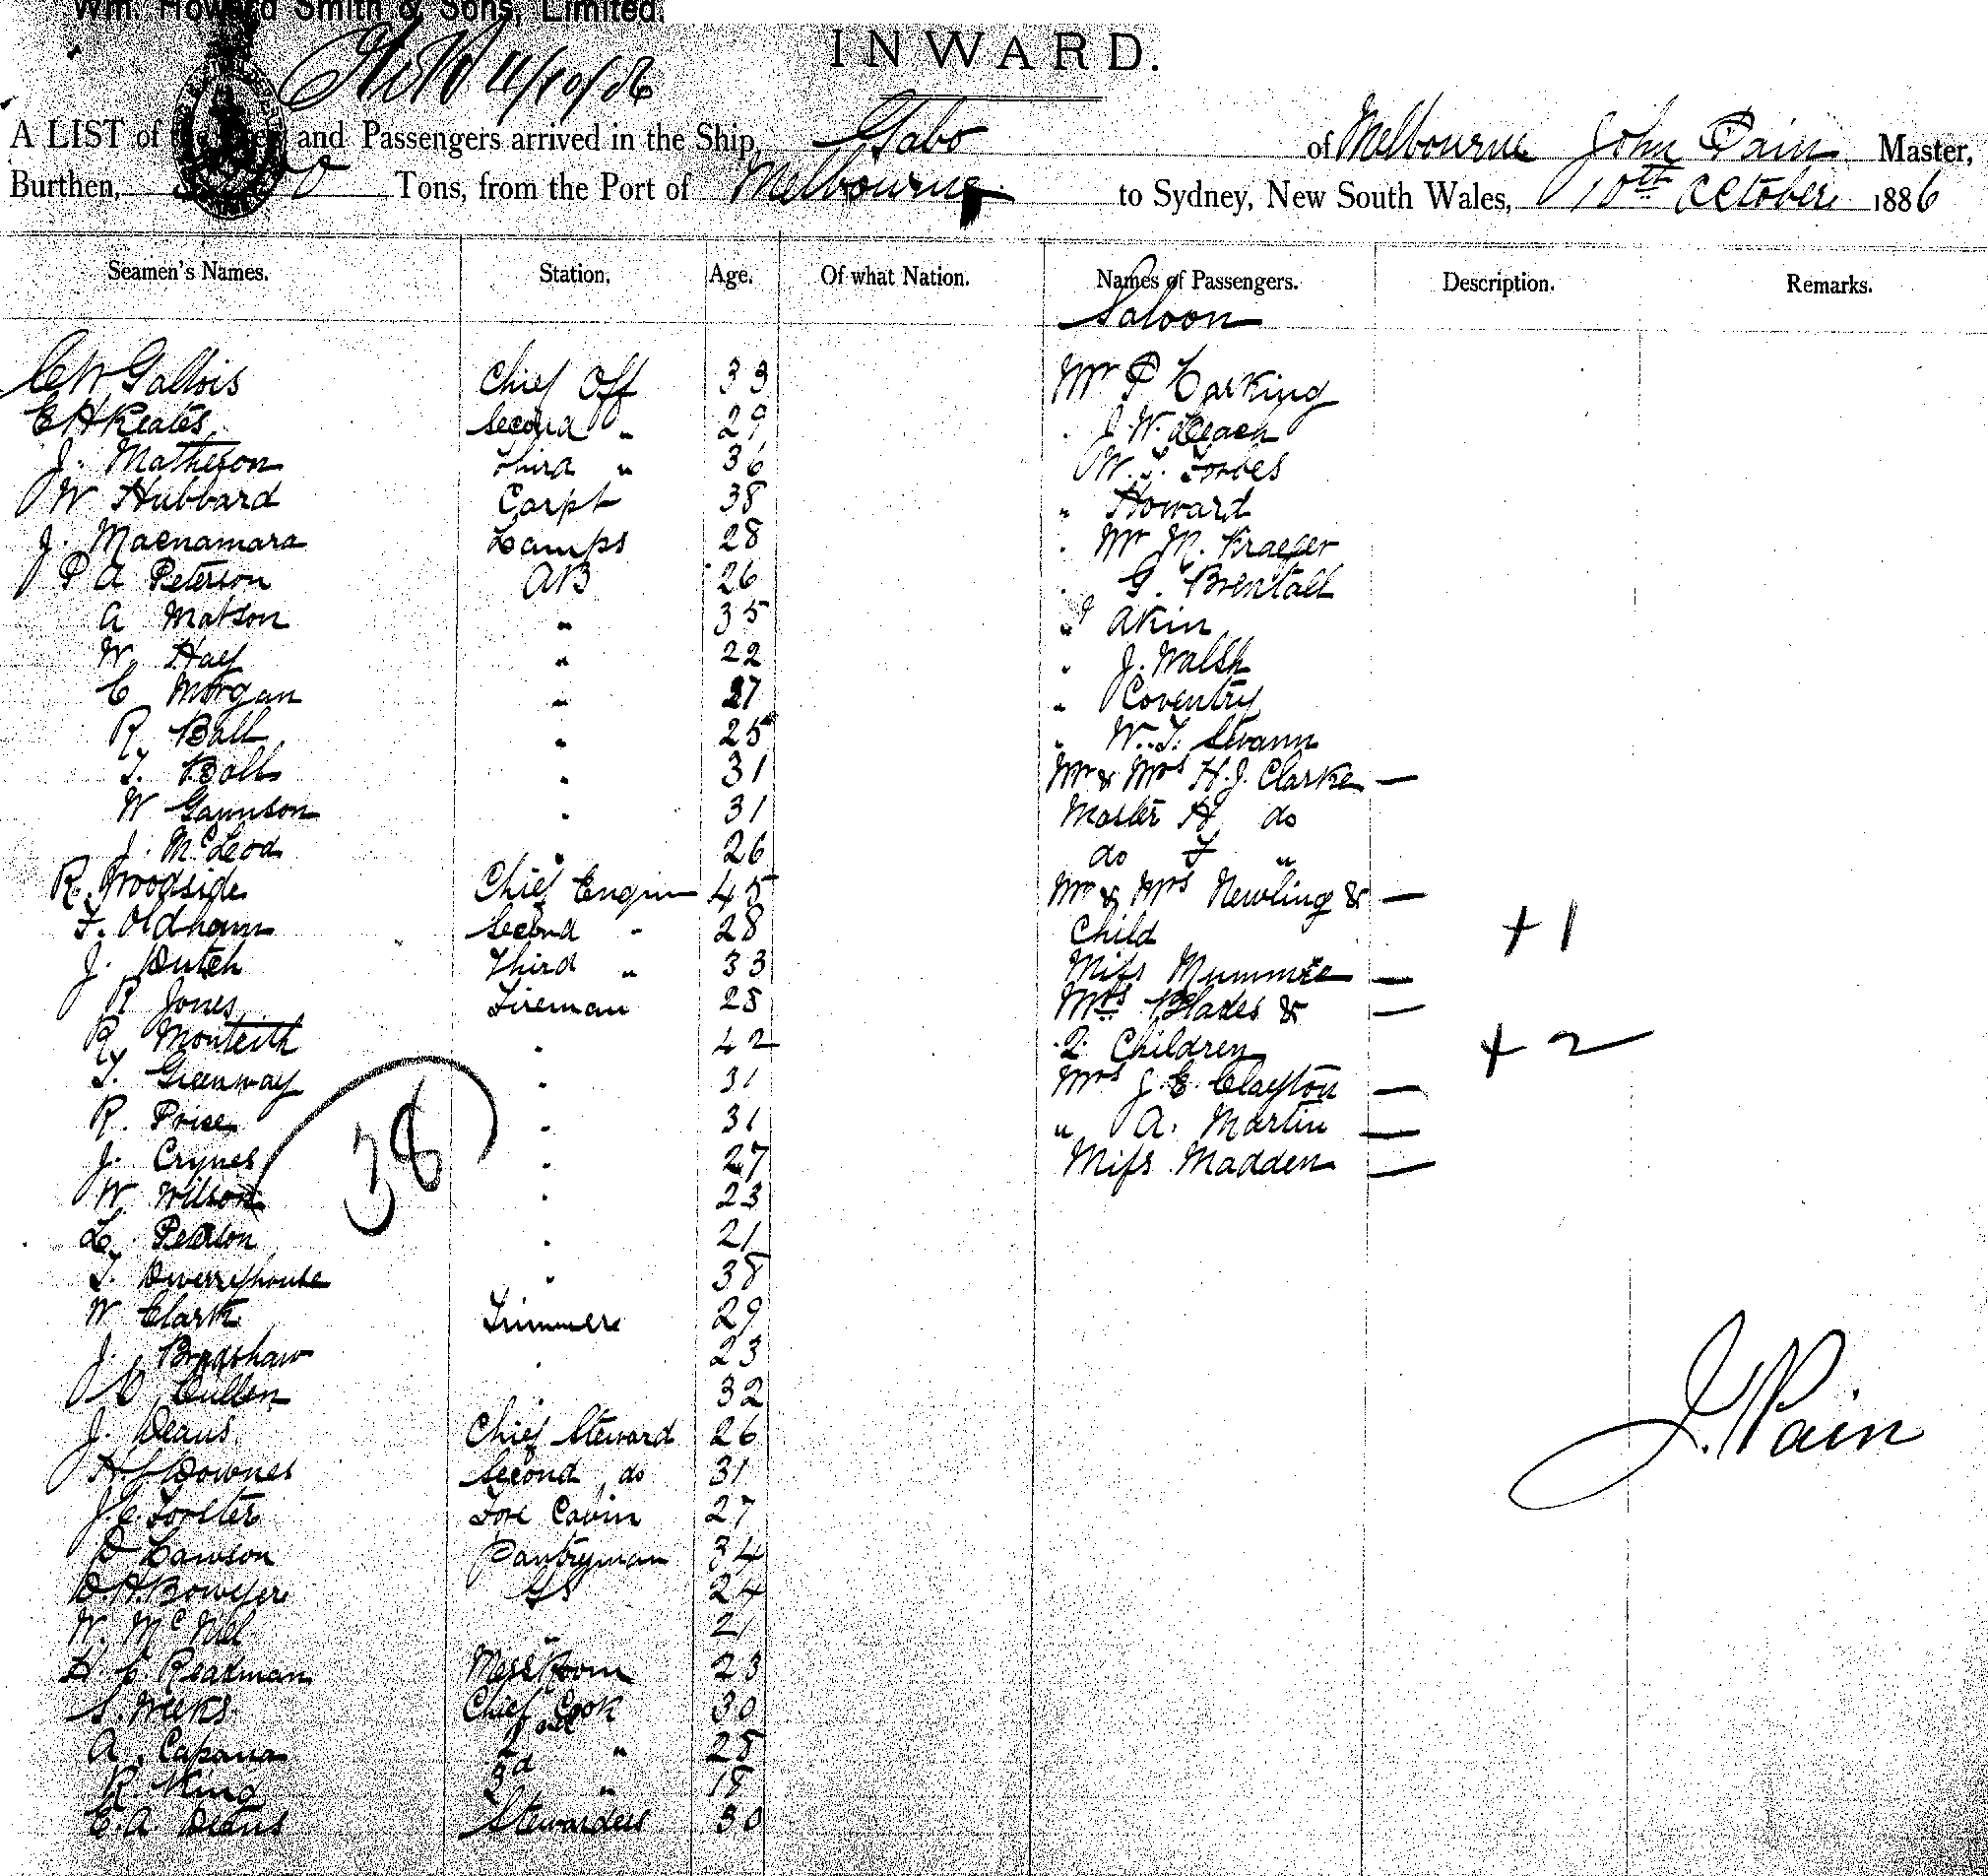 Wm. Howard Smith & Sons, Limited.
INWARD.
11/10/86
A LIST of and Passengers arrived in the Ship, Gabo of Melbourne John Pain Master,
Burthen, Tons, from the Port of Melbourne to Sydney, New South Wales, 10th October 1886
Seamen's Names. Station. Age. Of what Nation. Names of Passengers. Description. Remarks.
Saloon
C W Gallois Chief Off 33 Mr P Corking
E H Keates Second " 29 " J. W. Leach
J. Matheson Third " 36 W. T. Forbes
W Hubbard Carpt 38 " Howard
J. Macnamara Lamps 28 " Mr M. Kraefer
P A Peterson AB 26 " G. Brentall
A Matson " 35 " Akin
W. Hay " 22 " J. Walsh
C Morgan " 27 " Coventry
R. Ball " 25 " W. T. Swann
T. Balls " 31 Mr & Mrs H. J. Clarke —
W Gaunson " 31 Master H do
J. McLeod " 26 do F "
R. Woodside Chief Engin 45 Mr & Mrs Newling & —
F. Oldham Second " 28 Child +1
J. Dutch Third " 33 Miss Mummie —
R Jones Fireman 28 Mrs Blades & —
R. Monteith " 42 2 Children +2
T. Greenway " 31 Mrs J. E. Clayton —
R. Price " 31 " A. Martin —
J. Crynes " 27 Miss Madden —
38
W. Wilson " 23
L. Peterson " 21
T. " 38
W Clark Trimmer 29
J. Bradshaw " 23
C Cullen " 32
J. Deans Chief Steward 26
J. Pain
H J Downes Second do 31
J. C. Forster Fore Cabin 27
Lawson Pantryman 34
Bowyer GS 24
W. McNiel " 21
Readman Mess Room 23
S. Weeks Chief Cook 30
A. Capana 2nd " 28
R. King 3d " 18
E. A. Deans Stewardess 30